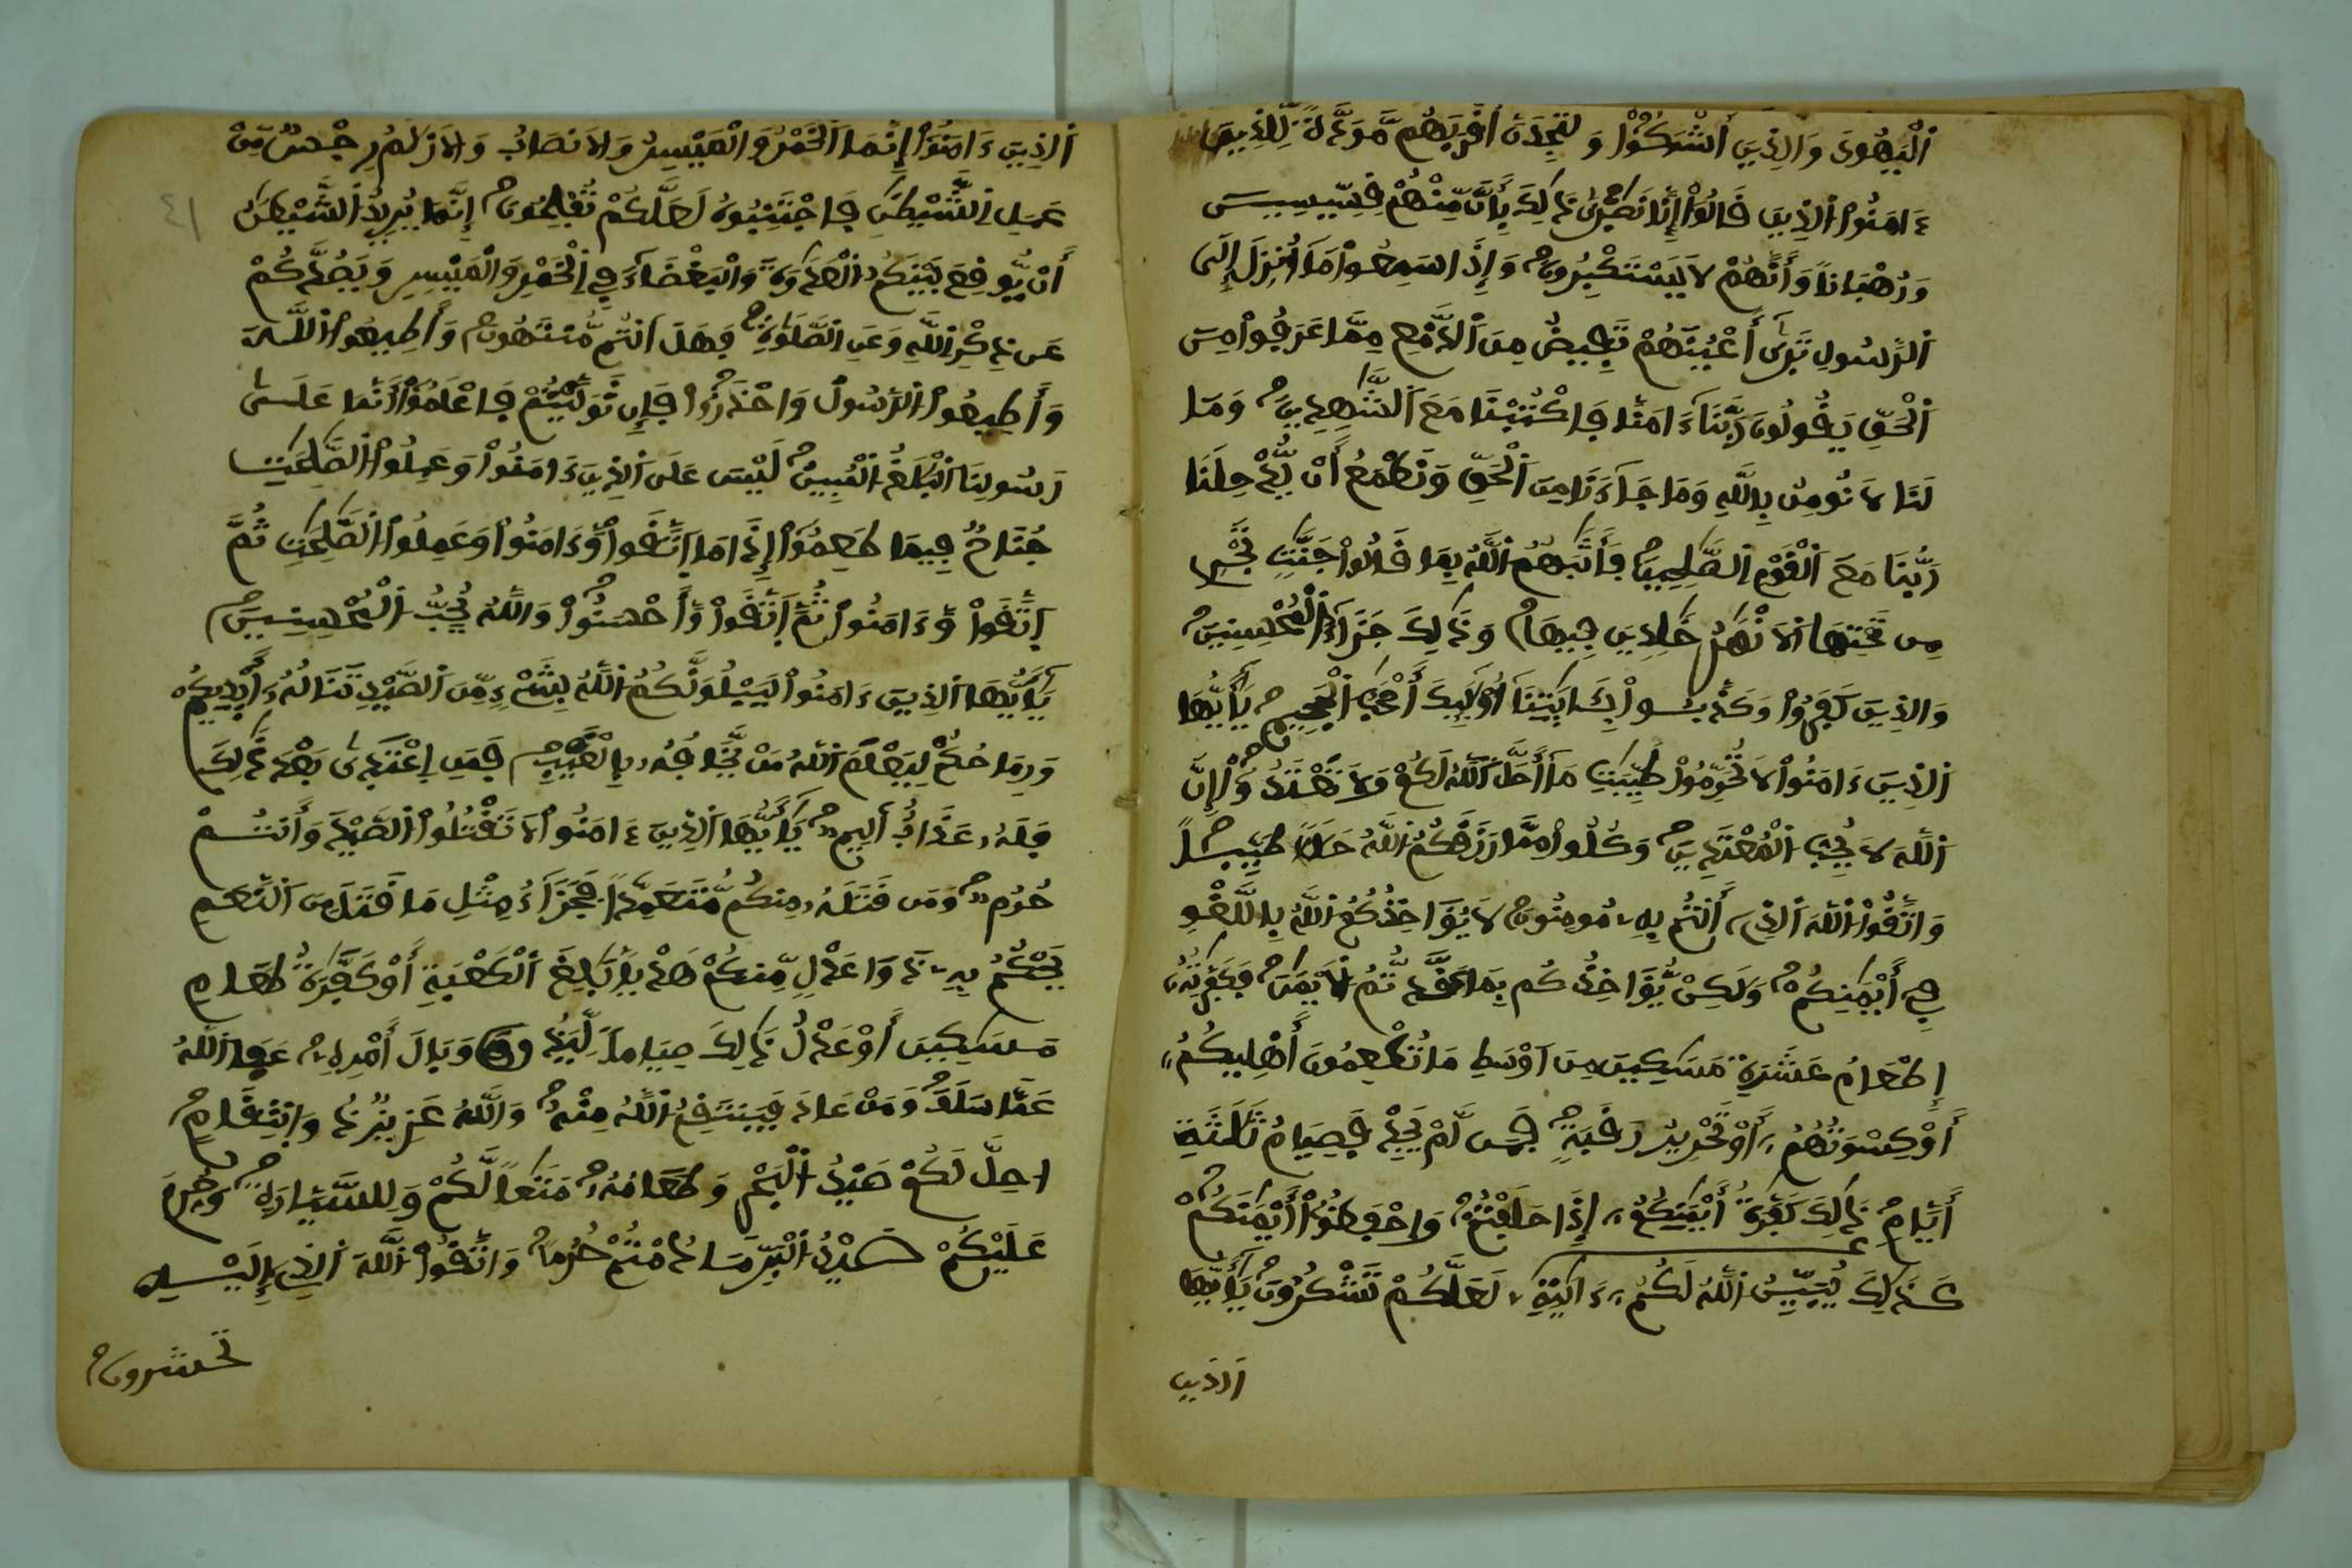 اَ۬لْيَهُودَ وَالذِينَ أَشْرَكُواْ وَلَتَجِدَنَّ أَقْرَبَهُم مَّوَدَّةً لِّلذِينَ
ءَامَنُواْ اُ۬لذِينَ قَالُواْ إِنَّا نَصَٰرَىٰ ذَٰلِكَ بِأَنَّ مِنْهُمْ قِسِّيسِينَ
وَرُهْبَاناً وَأَنَّهُمْ لَا يَسْتَكْبِرُونَ وَإِذَا سَمِعُواْ مَا أُنزِلَ إِلَى
اَ۬لرَّسُولِ تَرَىٰ أَعْيُنَهُمْ تَفِيضُ مِنَ اَ۬لدَّمْعِ مِمَّا عَرَفُواْ مِنَ
اَ۬لْحَقِّ يَقُولُونَ رَبَّنَا ءَامَنَّا فَاكْتُبْنَا مَعَ اَ۬لشَّٰهِدِينَ وَمَا
لَنَا لَا نُومِنُ بِاللَّهِ وَمَا جَاءَنَا مِنَ اَ۬لْحَقِّ وَنَطْمَعُ أَنْ يُّدْخِلَنَا
رَبُّنَا مَعَ اَ۬لْقَوْمِ اِ۬لصَّٰلِحِينَ فَأَثَٰبَهُمُ اُ۬للَّهُ بِمَا قَالُواْ جَنَّٰتٍ تَجْرِي
مِن تَحْتِهَا اَ۬لَانْهَٰرُ خَٰلِدِينَ فِيهَا وَذَٰلِكَ جَزَاءُ اُ۬لْمُحْسِنِينَ
وَالذِينَ كَفَرُواْ وَكَذَّبُواْ بِـَٔايَٰتِنَا أُوْلَٰئِكَ أَصْحَٰبُ اُ۬لْجَحِيمِ يَٰأَيُّهَا
اَ۬لذِينَ ءَامَنُواْ لَا تُحَرِّمُواْ طَيِّبَٰتِ مَا أَحَلَّ اَ۬للَّهُ لَكُمْ وَلَا تَعْتَدُواْ إِنَّ
اَ۬للَّهَ لَا يُحِبُّ اُ۬لْمُعْتَدِينَ وَكُلُواْ مِمَّا رَزَقَكُمُ اُ۬للَّهُ حَلَٰلاً طَيِّباً
وَاتَّقُواْ اُ۬للَّهَ اَ۬لذِي أَنتُم بِهِ مُومِنُونَ لَا يُؤَاخِذُكُمُ اُ۬للَّهُ بِاللَّغْوِ
فِي أَيْمَٰنِكُمْ وَلَٰكِنْ يُّؤَاخِذُكُم بِمَا عَقَّدتُّمُ اُ۬لَايْمَٰنَ فَكَفَّٰرَتُهُ
إِطْعَامُ عَشَرَةِ مَسَٰكِينَ مِنَ اَوْسَطِ مَا تُطْعِمُونَ أَهْلِيكُمُ
أَوْ كِسْوَتُهُمُ أَوْ تَحْرِيرُ رَقَبَةٍ فَمَن لَّمْ يَجِدْ فَصِيَامُ ثَلَٰثَةِ
أَيَّامٍ ذَٰلِكَ كَفَّٰرَةُ أَيْمَٰنِكُمُ إِذَا حَلَفْتُمْ وَاحْفَظُواْ أَيْمَٰنَكُمْ
كَذَٰلِكَ يُبَيِّنُ اُ۬للَّهُ لَكُمُ ءَايَٰتِهِ لَعَلَّكُمْ تَشْكُرُونَ يَٰأَيُّهَا
اَلذين
٤١
اَ۬لذِينَ ءَامَنُواْ إِنَّمَا اَ۬لْخَمْرُ وَالْمَيْسِرُ وَالَانصَابُ وَالَازْلَٰمُ رِجْسٌ مِّنْ
عَمَلِ اِ۬لشَّيْطَٰنِ فَاجْتَنِبُوهُ لَعَلَّكُمْ تُفْلِحُونَ إِنَّمَا يُرِيدُ اُ۬لشَّيْطَٰنُ
أَنْ يُّوقِعَ بَيْنَكُمُ اُ۬لْعَدَٰوَةَ وَالْبَغْضَاءَ فِي اِ۬لْخَمْرِ وَالْمَيْسِرِ وَيَصُدَّكُمْ
عَن ذِكْرِ اِ۬للَّهِ وَعَنِ اِ۬لصَّلَوٰةِ فَهَلَ اَنتُم مُّنتَهُونَ وَأَطِيعُواْ اُ۬للَّهَ
وَأَطِيعُواْ اُ۬لرَّسُولَ وَاحْذَرُواْ فَإِن تَوَلَّيْتُمْ فَاعْلَمُواْ أَنَّمَا عَلَىٰ
رَسُولِنَا اَ۬لْبَلَٰغُ اُ۬لْمُبِينُ لَيْسَ عَلَى اَ۬لذِينَ ءَامَنُواْ وَعَمِلُواْ اُ۬لصَّٰلِحَٰتِ
جُنَاحٌ فِيمَا طَعِمُواْ إِذَا مَا اَ۪تَّقَواْ وَّءَامَنُواْ وَعَمِلُواْ اُ۬لصَّٰلِحَٰتِ ثُمَّ
اَ۪تَّقَواْ وَّءَامَنُواْ ثُمَّ اَ۪تَّقَواْ وَّأَحْسَنُواْ وَاللَّهُ يُحِبُّ اُ۬لْمُحْسِنِينَ
يَٰأَيُّهَا اَ۬لذِينَ ءَامَنُواْ لَيَبْلُوَنَّكُمُ اُ۬للَّهُ بِشَيْءٍ مِّنَ اَ۬لصَّيْدِ تَنَالُهُ أَيْدِيكُمْ
وَرِمَاحُكُمْ لِيَعْلَمَ اَ۬للَّهُ مَنْ يَّخَافُهُ بِالْغَيْبِ فَمَنِ اِ۪عْتَدَىٰ بَعْدَ ذَٰلِكَ
فَلَهُ عَذَابٌ أَلِيمٌ يَٰأَيُّهَا اَ۬لذِينَ ءَامَنُواْ لَا تَقْتُلُواْ اُ۬لصَّيْدَ وَأَنتُمْ
حُرُمٌ وَمَن قَتَلَهُ مِنكُم مُّتَعَمِّداً فَجَزَاءُ مِثْلِ مَا قَتَلَ مِنَ اَ۬لنَّعَمِ
يَحْكُمُ بِهِ ذَوَا عَدْلٍ مِّنكُمْ هَدْياً بَٰلِغَ اَ۬لْكَعْبَةِ أَوْ كَفَّٰرَةُ طَعَامِ
مَسَٰكِينَ أَوْ عَدْلُ ذَٰلِكَ صِيَاماً لِّيَذُوقَ وَبَالَ أَمْرِهِ عَفَا اَ۬للَّهُ
عَمَّا سَلَفَ وَمَنْ عَادَ فَيَنتَقِمُ اُ۬للَّهُ مِنْهُ وَاللَّهُ عَزِيزٌ ذُو اُ۪نتِقَامٍ
احِلَّ لَكُمْ صَيْدُ اُ۬لْبَحْرِ وَطَعَامُهُ مَتَٰعاً لَّكُمْ وَلِلسَّيَّارَةِ وَحُرِّمَ
عَلَيْكُمْ صَيْدُ اُ۬لْبَرِّ مَا دُمْتُمْ حُرُماً وَاتَّقُواْ اُ۬للَّهَ اَ۬لذِي إِلَيْهِ
تحشرون